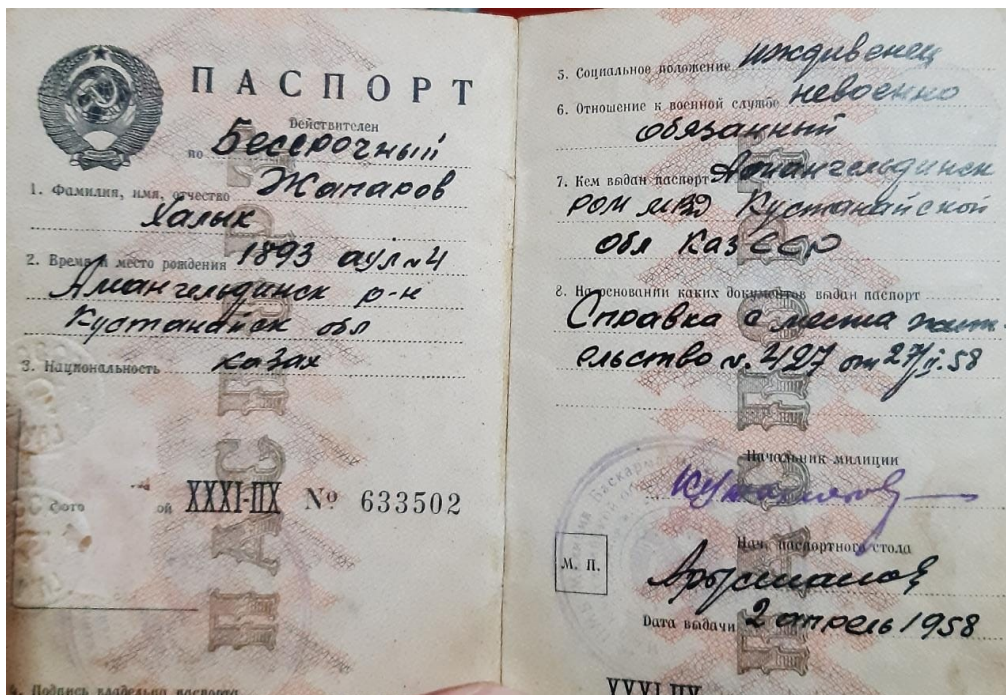 ПАСПОРТ
Действителен
по Бессрочный
1. Фамилия, имя, отчество Жапаров
Халык
2. Время и место рождения 1893 аул №4
Амангельдинск р-н
Кустанайск обл
3. Национальность казах
фото
ой XXXI-ПХ № 633502
4. Подпись владельца паспорта
5. Социальное положение иждивенец
6. Отношение к военной службе невоенно
обязанный
7. Кем выдан паспорт Амангельдинск
РОМ МВД Кустанайской
обл КазССР
8. На основании каких документов выдан паспорт
Справка с места жит
ельство №. 427 от 27/II.58
Начальник милиции
Нач. паспортного стола
М. П.
Дата выдачи 2 апрель 1958
XXXI-ПХ